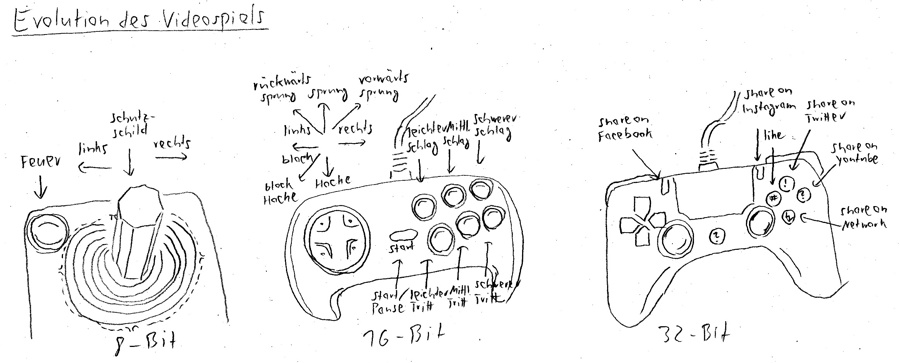 Evolution des Videospiels
Feuer
links
schutz-
schild
rechts
8-Bit
rückwärts
sprung
sprung
vorwärts
sprung
links
rechts
block
block
Hocke
Hocke
leichter
schlag
Mittl.
schlag
schwerer
schlag
start
start/
Pause
leichter
Tritt
Mittl
Tritt
schwerer
Tritt
16-Bit
share on
Facebook
share on
Instagram
like
share on
Twitter
share on
youtube
share on
Network
!
#
?
?
32-Bit